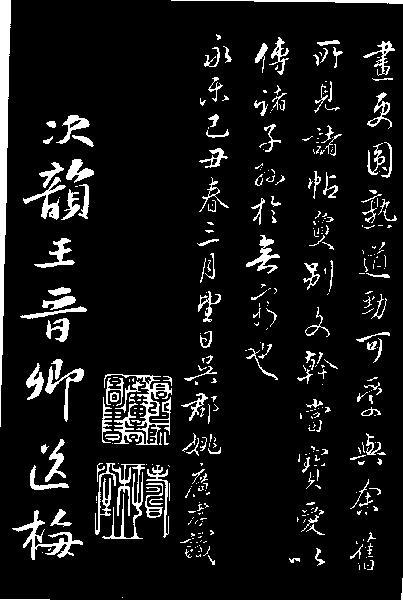 畫更圓熟遒勁可愛與余舊
所見諸帖敻別文幹當寶愛以
傳諸子孫於無窮也
永樂己丑春三月望日吳郡姚廣孝識
次韻王晉卿送梅